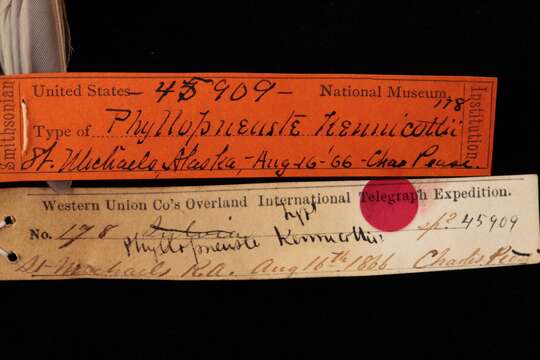 Smithsonian
United States - 45909 - National Museum,
178
Type of Phyllopneuste Kennicottii
St. Michaels, Alaska, - Aug 16 - '66 - Chas Pease.
Institution
Western Union Co's Overland International Telegraph Expedition.
type
No. 178 sp? 45909
Phyllopneuste Kennicottii
St. Michaels R.A. Aug 16th 1866 Charles